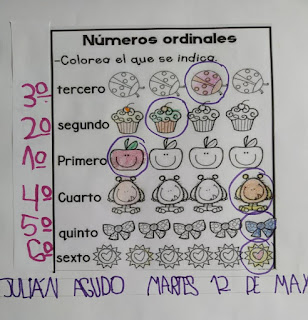 Números ordinales
-Colorea el que se indica.
3º tercero
2º segundo
1º Primero
4º Cuarto
5º quinto
6º sexto
JULIAN AGUDO MARTES 12 DE MAY